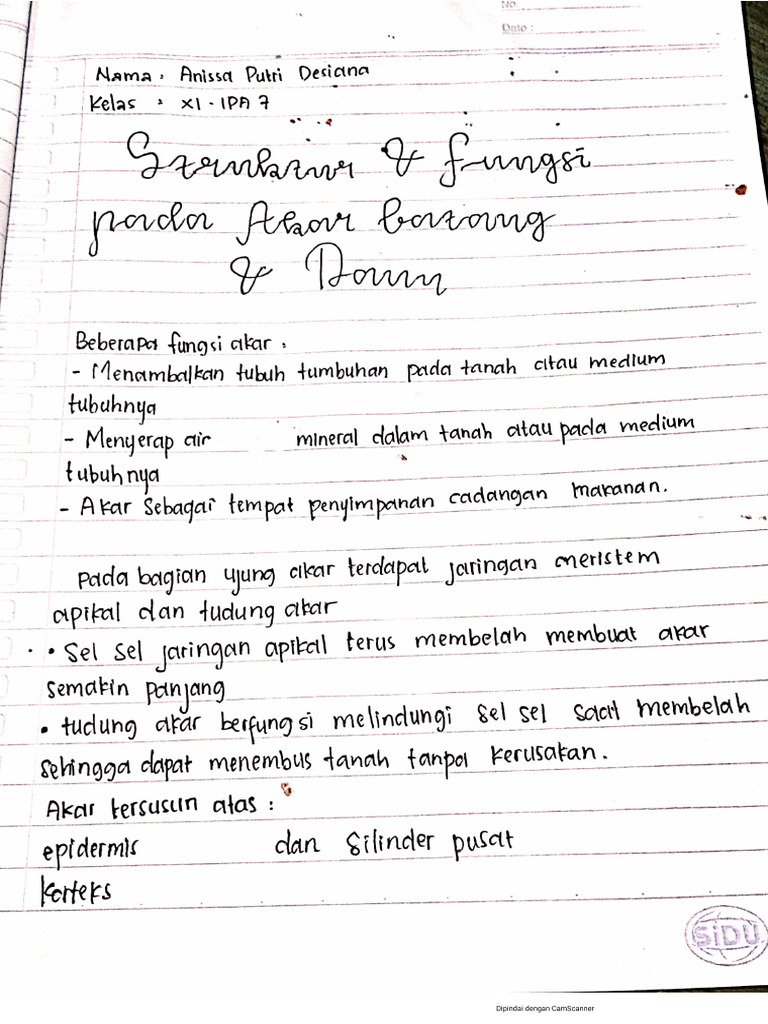 No.
Date :
Nama : Anissa Putri Desiana
Kelas : XI - IPA 7
Struktur & fungsi
pada Akar batang
& Daun
Beberapa fungsi akar :
- Menambalkan tubuh tumbuhan pada tanah atau medium
tubuhnya
- Menyerap air mineral dalam tanah atau pada medium
tubuhnya
- Akar sebagai tempat penyimpanan cadangan makanan.
pada bagian ujung akar terdapat jaringan meristem
apikal dan tudung akar
• Sel sel jaringan apikal terus membelah membuat akar
semakin panjang
• tudung akar berfungsi melindungi sel sel saat membelah
sehingga dapat menembus tanah tanpa kerusakan.
Akar tersusun atas :
epidermis dan Silinder pusat
Korteks
SiDU
Dipindai dengan CamScanner